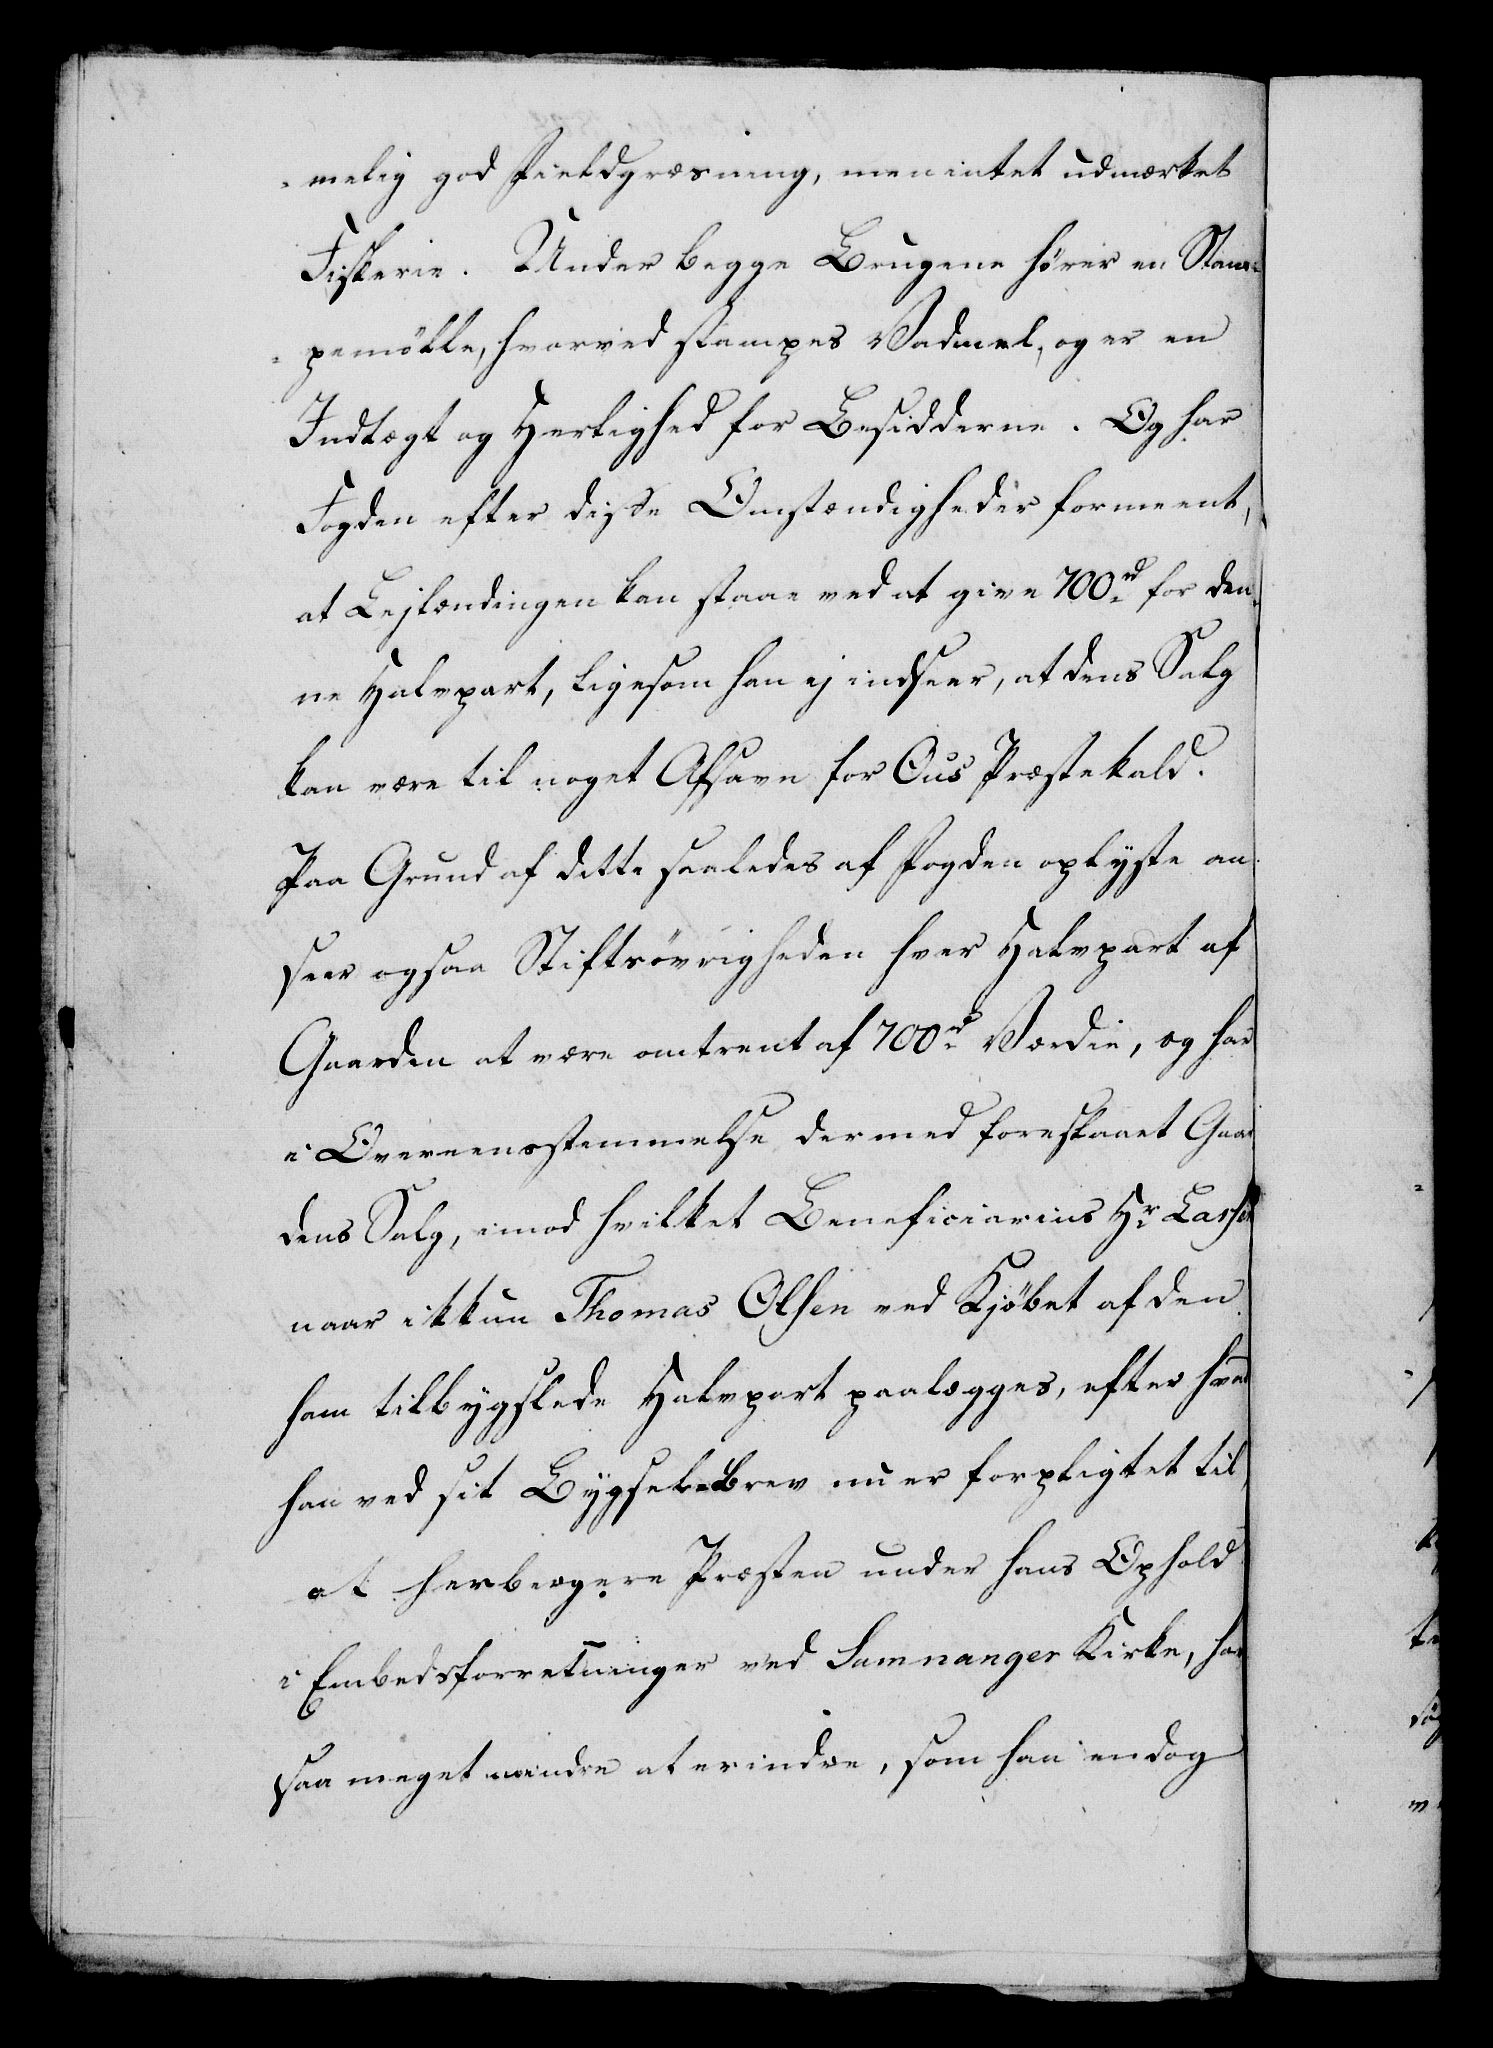 melig god Fieldgræsning, men intet udmærket
Fiskerie. Under begge Brugene hører en Stam-
pemölle, hvorved stampes Vadmel, og er en
Indtægt og Herlighed for Besidderne. Og har
Fogden efter disse Omstændigheder formeent,
at Lejlændingen kan staae ved at give 700 rd for den-
ne Halvpart, ligesom han ej indseer, at dens Salg
kan være til noget Afsavn for Ous Præstekald.
Paa Grund af dette saaledes af Fogden oplyste an-
seer ogsaa Stiftsøvrigheden hver Halvpart af
Gaarden at være omtrent af 700 rd Værdie, og har
i Overeensstemmelse dermed foreslaaet Gaar
dens Salg, imod hvilket Beneficiarius Hr Larsen
naar ikkun Thomas Olsen ved Kjöbet af den
ham tilbygslede Halvpart paalægges, efter hvad
han ved sit Bygsel-Brev nu er forpligtet til,
at herbergere Præsten under hans Ophold
i Embedsforretninger ved Samnanger Kirke, har
saa meget mindre at erindre, som han endog